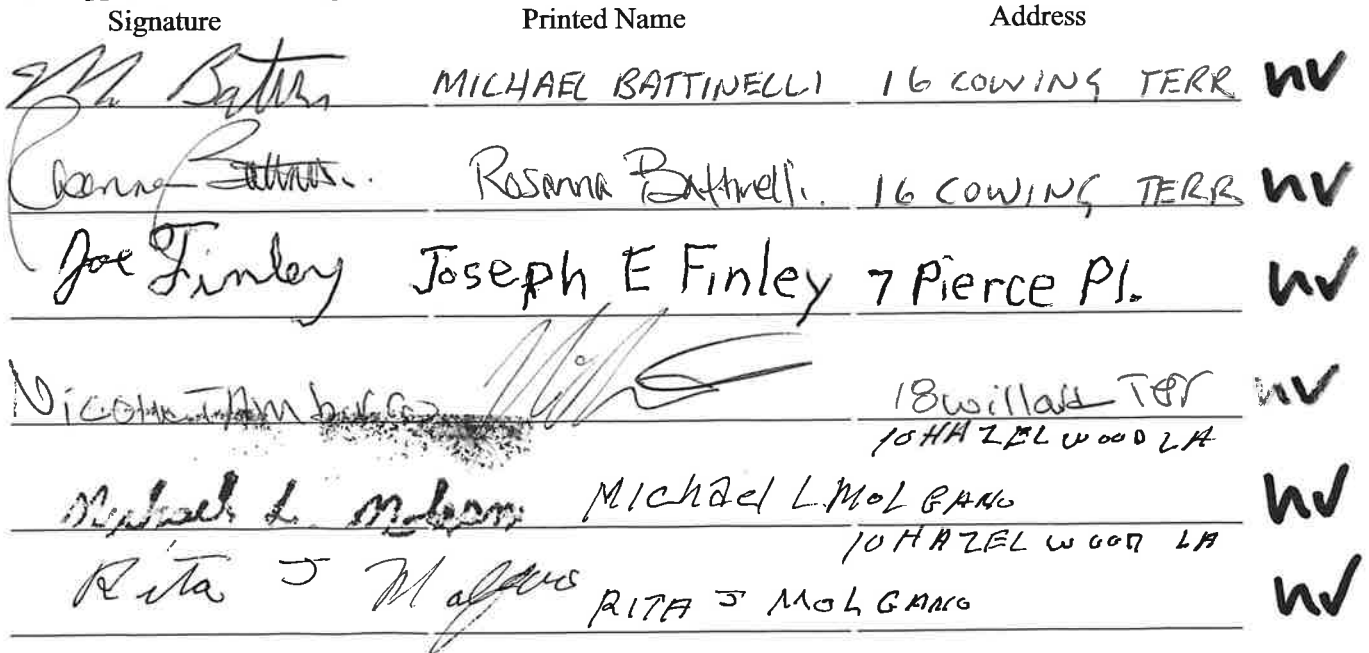 Signature Printed Name Address
M. Battin MICHAEL BATTINELLI 16 COWING TERR nv
Rosanna Rosanna Battinelli. 16 COWING TERR nv
Joe Finley Joseph E Finley 7 Pierce Pl. nv
Nicole TAMburro 18 willard Terr nv
10 HAZELWOOD LA
Michael L. Michael L. MOLGANO nv
10 HAZELWOOD LA
Rita J Molgano RITA J MOLGANO nv